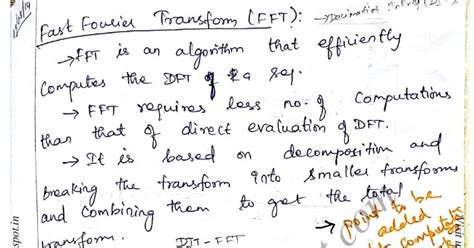 Fast Fourier Transform (FFT): → Decimation
→ FFT is an algorithm that efficiently
computes the DFT of a seq.
→ FFT requires less no. of computations
than that of direct evaluation of DFT.
→ It is based on decomposition and
breaking the transform into smaller transforms
and combining them to get the total
transform.
DIT-FFT
→ point to be
added
to compute
spot.in